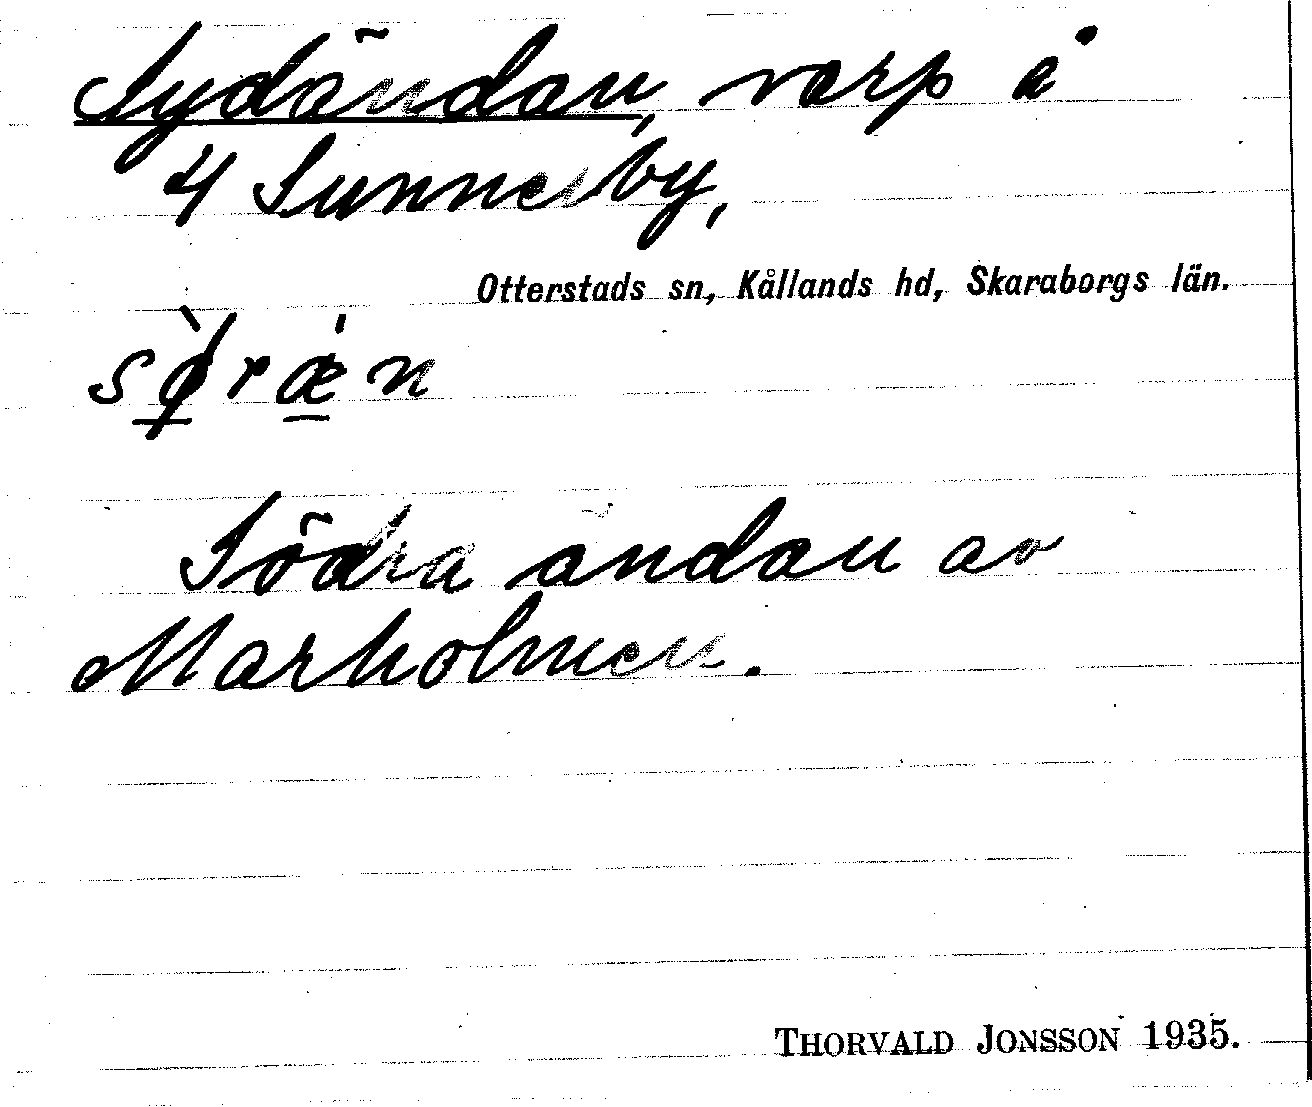 Sydändan, varp å
4 Sunnersby,
Otterstads sn, Kållands hd, Skaraborgs län.
sø̀ræ̍n
Södra ändan av
Marholmen.
THORVALD JONSSON 1935.